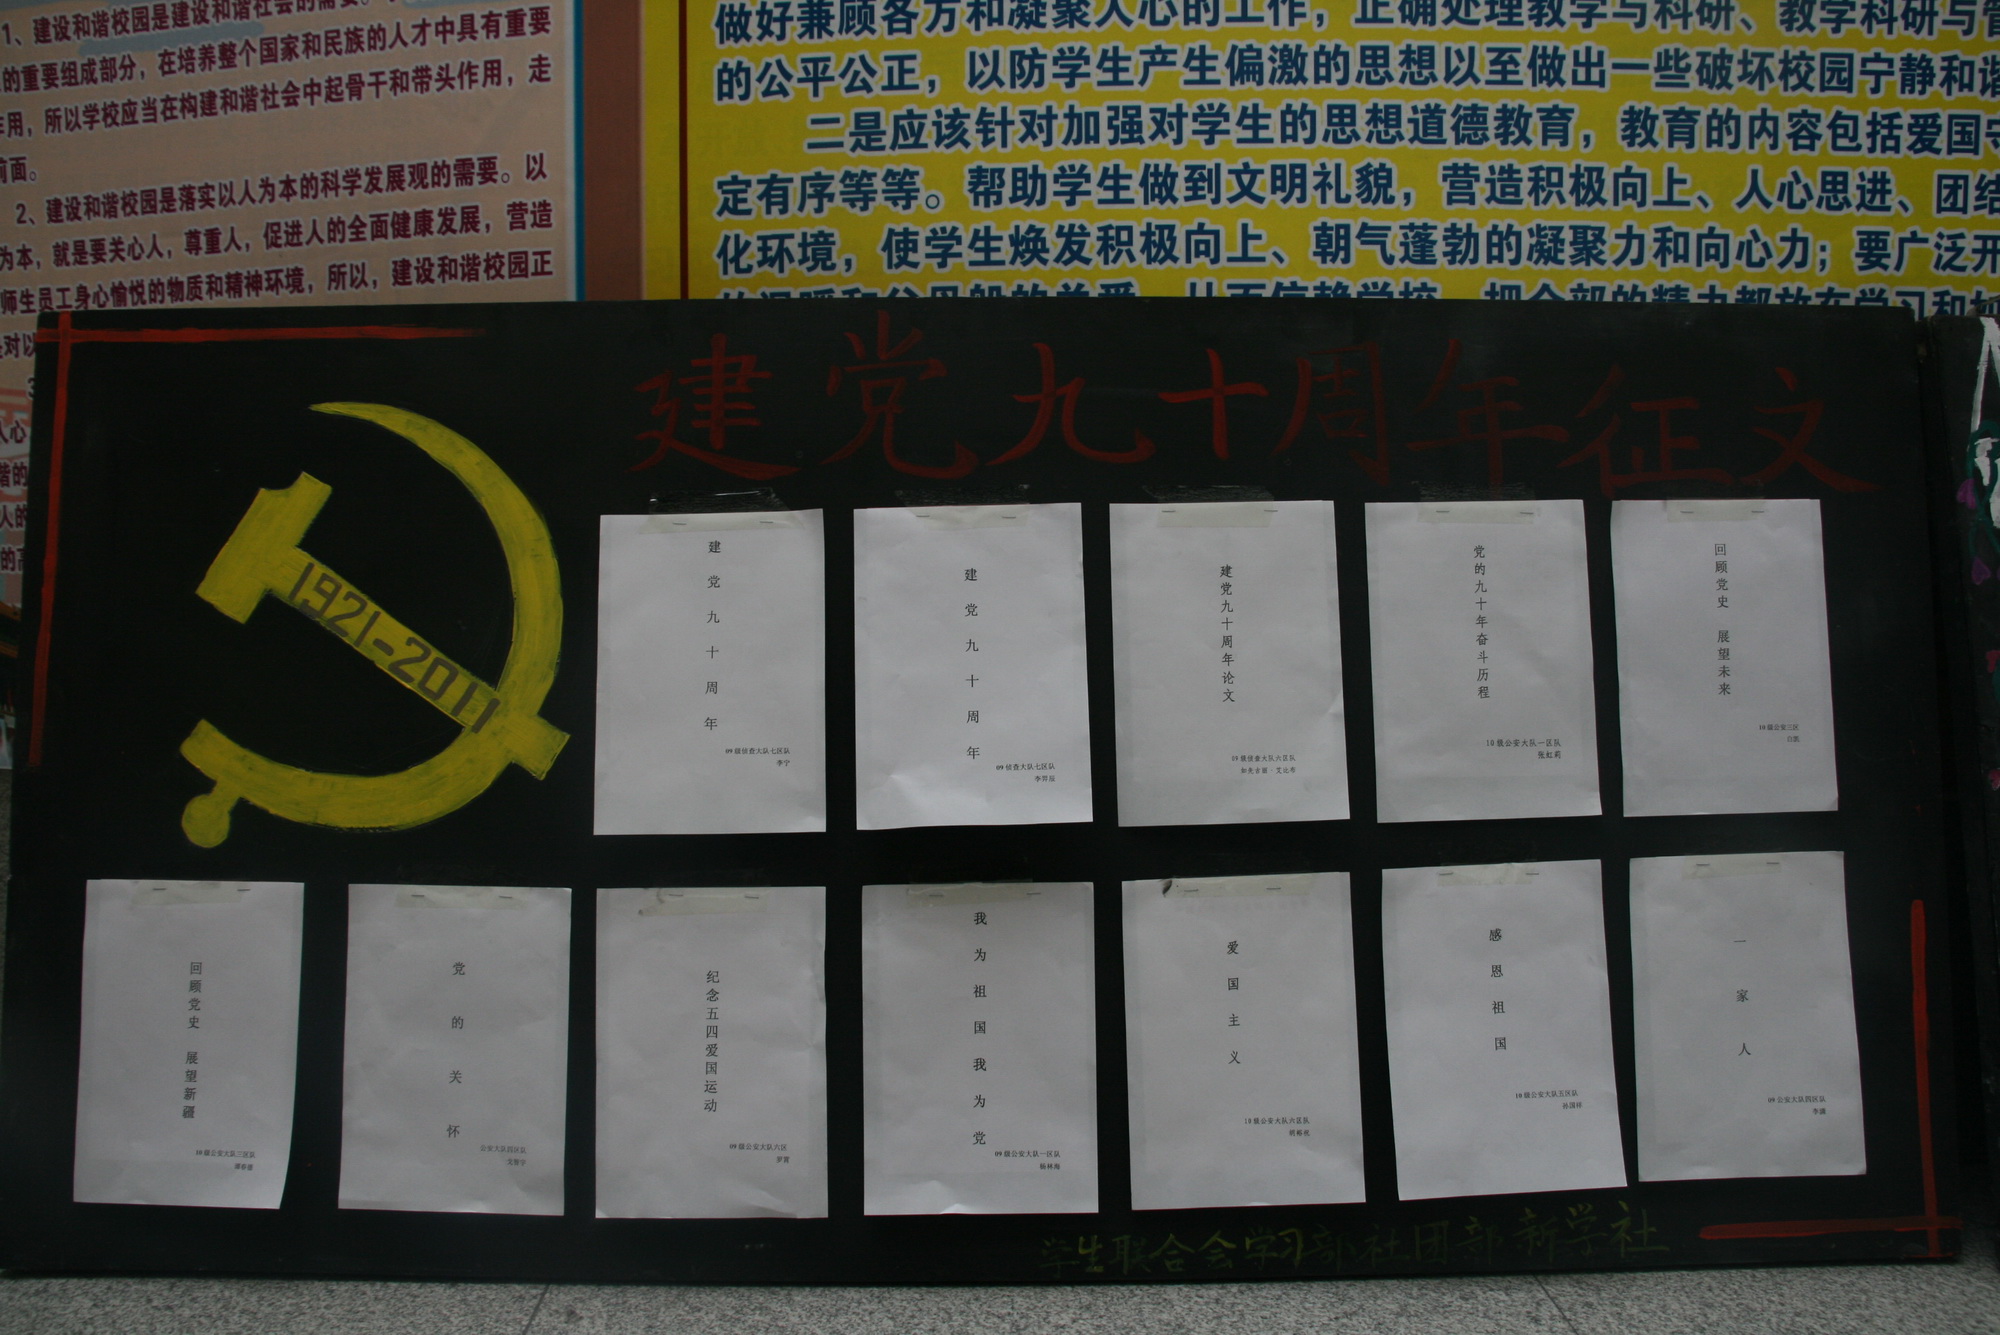 1、建设和谐校园是建设和谐社会的需要。
的重要组成部分，在培养整个国家和民族的人才中具有重要
作用，所以学校应当在构建和谐社会中起骨干和带头作用，走
前面。
2、建设和谐校园是落实以人为本的科学发展观的需要。以
为本，就是要关心人，尊重人，促进人的全面健康发展，营造
师生员工身心愉悦的物质和精神环境，所以，建设和谐校园正
是对以
做好兼顾各方和凝聚人心的工作，正确处理教学与科研、教学科研与管
的公平公正，以防学生产生偏激的思想以至做出一些破坏校园宁静和谐
二是应该针对加强对学生的思想道德教育，教育的内容包括爱国守
定有序等等。帮助学生做到文明礼貌，营造积极向上、人心思进、团结
化环境，使学生焕发积极向上、朝气蓬勃的凝聚力和向心力；要广泛开
的温暖和父母般的关爱，从而信赖学校，把全部的精力都放在学习和
建党九十周年征文
1921-2011
建党九十周年
09级侦查大队七区队
李宁
建党九十周年
09侦查大队七区队
李羿辰
建党九十周年论文
09级侦查大队六区队
党的九十年奋斗历程
10级公安大队一区队
张虹莉
回顾党史 展望未来
10级公安三区
白凯
回顾党史 展望新疆
10级公安大队三区队
党的关怀
公安大队四区队
纪念五四爱国运动
09级公安大队六区
罗霄
我为祖国我为党
09级公安大队一区队
杨林海
爱国主义
10级公安大队六区队
感恩祖国
10级公安大队五区队
孙国祥
一家人
09公安大队四区队
学生联合会学习部社团部新学社